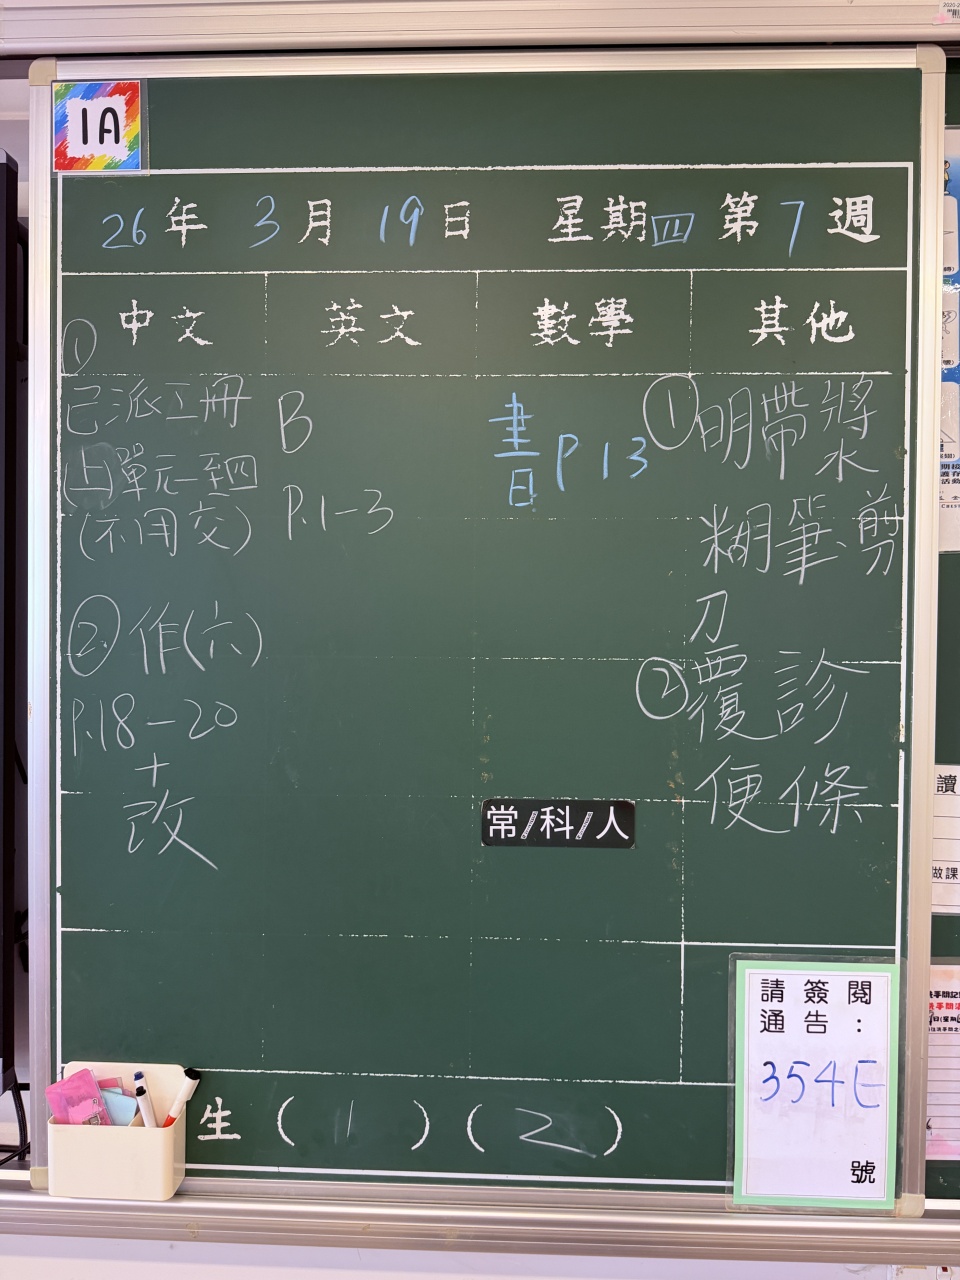 1A
26年 3月 19日 星期四 第7週
中文 英文 數學 其他
①
已派工冊
(上)單元一至四
(不用交)
② 作(六)
P.18-20
+
改
B
P.1-3
書 P 13
① 明帶漿
糊筆、剪
刀
② 覆診
便條
常/科/人
生 (1) (2)
請簽閱
通告：
354E
號
讀
做課